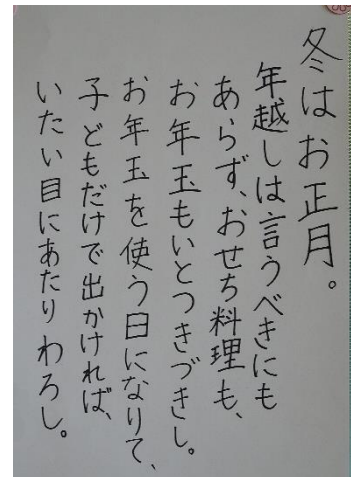 冬はお正月。
年越しは言うべきにも
あらず、おせち料理も、
お年玉もいとつきづきし。
お年玉を使う日になりて、
子どもだけで出かければ、
いたい目にあたりわろし。